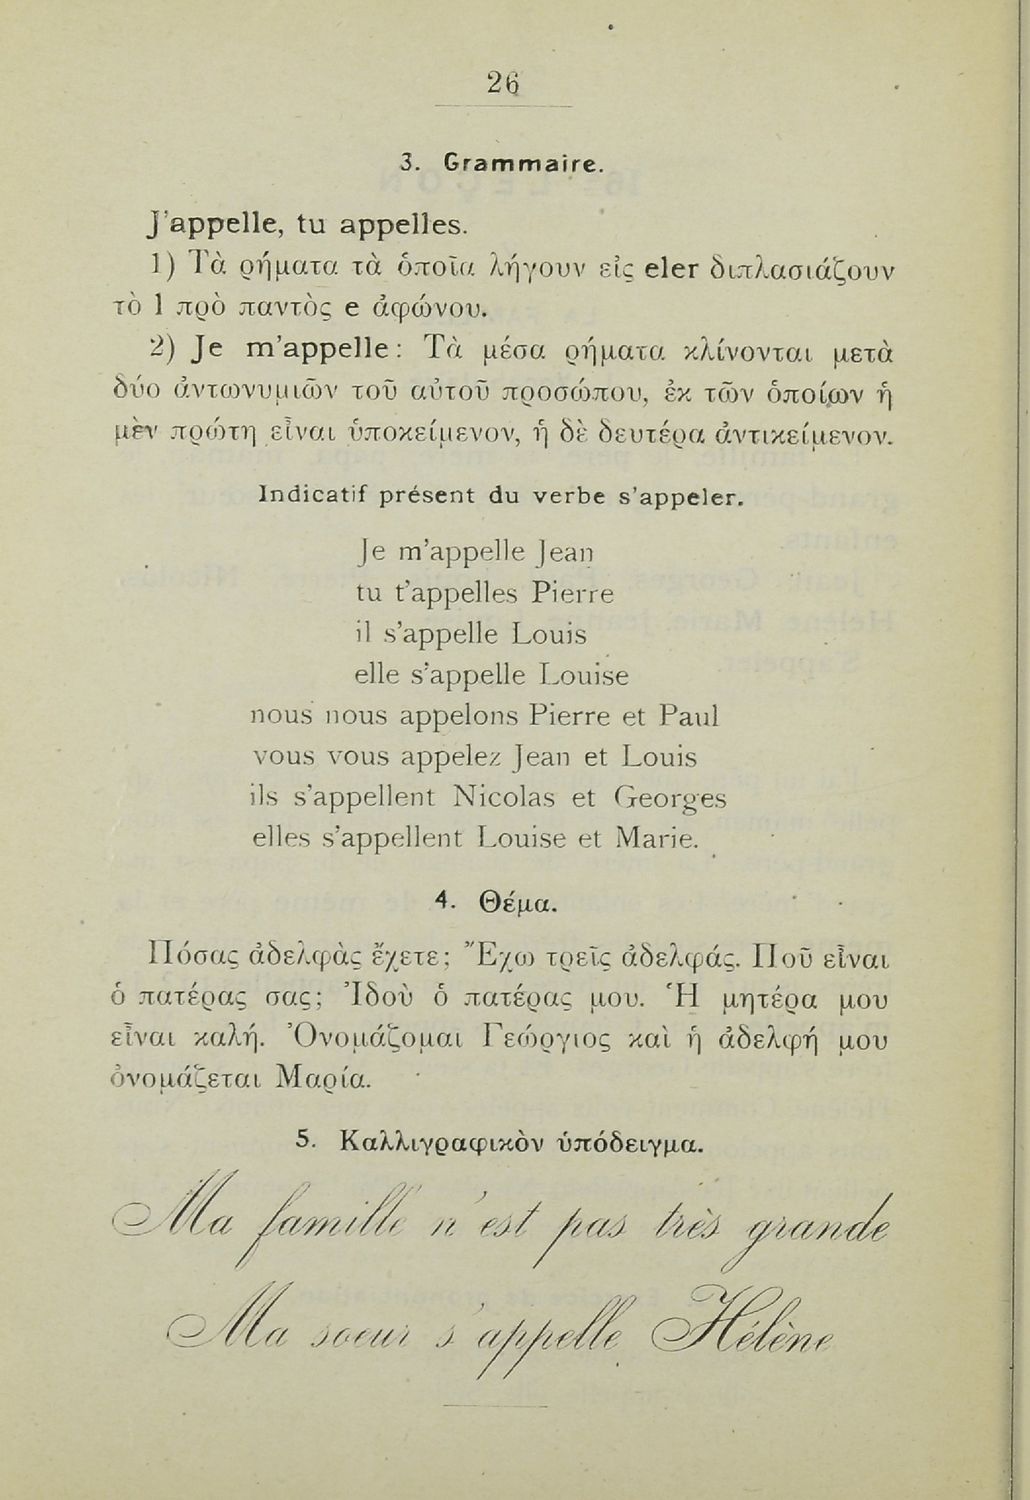 26
3. Grammaire.
J'appelle, tu appelles.
1) Τὰ ρήματα τὰ ὁποῖα λήγουν εἰς eler διπλασιάζουν
τὸ l πρὸ παντὸς e ἀφώνου.
2) Je m'appelle: Τὰ μέσα ρήματα κλίνονται μετὰ
δύο ἀντωνυμιῶν τοῦ αὐτοῦ προσώπου, ἐκ τῶν ὁποίων ἡ
μὲν πρώτη εἶναι ὑποκείμενον, ἡ δὲ δευτέρα ἀντικείμενον.
Indicatif présent du verbe s'appeler.
Je m'appelle Jean
tu t'appelles Pierre
il s'appelle Louis
elle s'appelle Louise
nous nous appelons Pierre et Paul
vous vous appelez Jean et Louis
ils s'appellent Nicolas et Georges
elles s'appellent Louise et Marie.
4. Θέμα.
Πόσας ἀδελφὰς ἔχετε; Ἔχω τρεῖς ἀδελφάς. Ποῦ εἶναι
ὁ πατέρας σας; Ἰδοὺ ὁ πατέρας μου. Ἡ μητέρα μου
εἶναι καλή. Ὀνομάζομαι Γεώργιος καὶ ἡ ἀδελφή μου
ὀνομάζεται Μαρία.
5. Καλλιγραφικὸν ὑπόδειγμα.
Ma famille n'est pas très grande
Ma soeur s'appelle Hélène